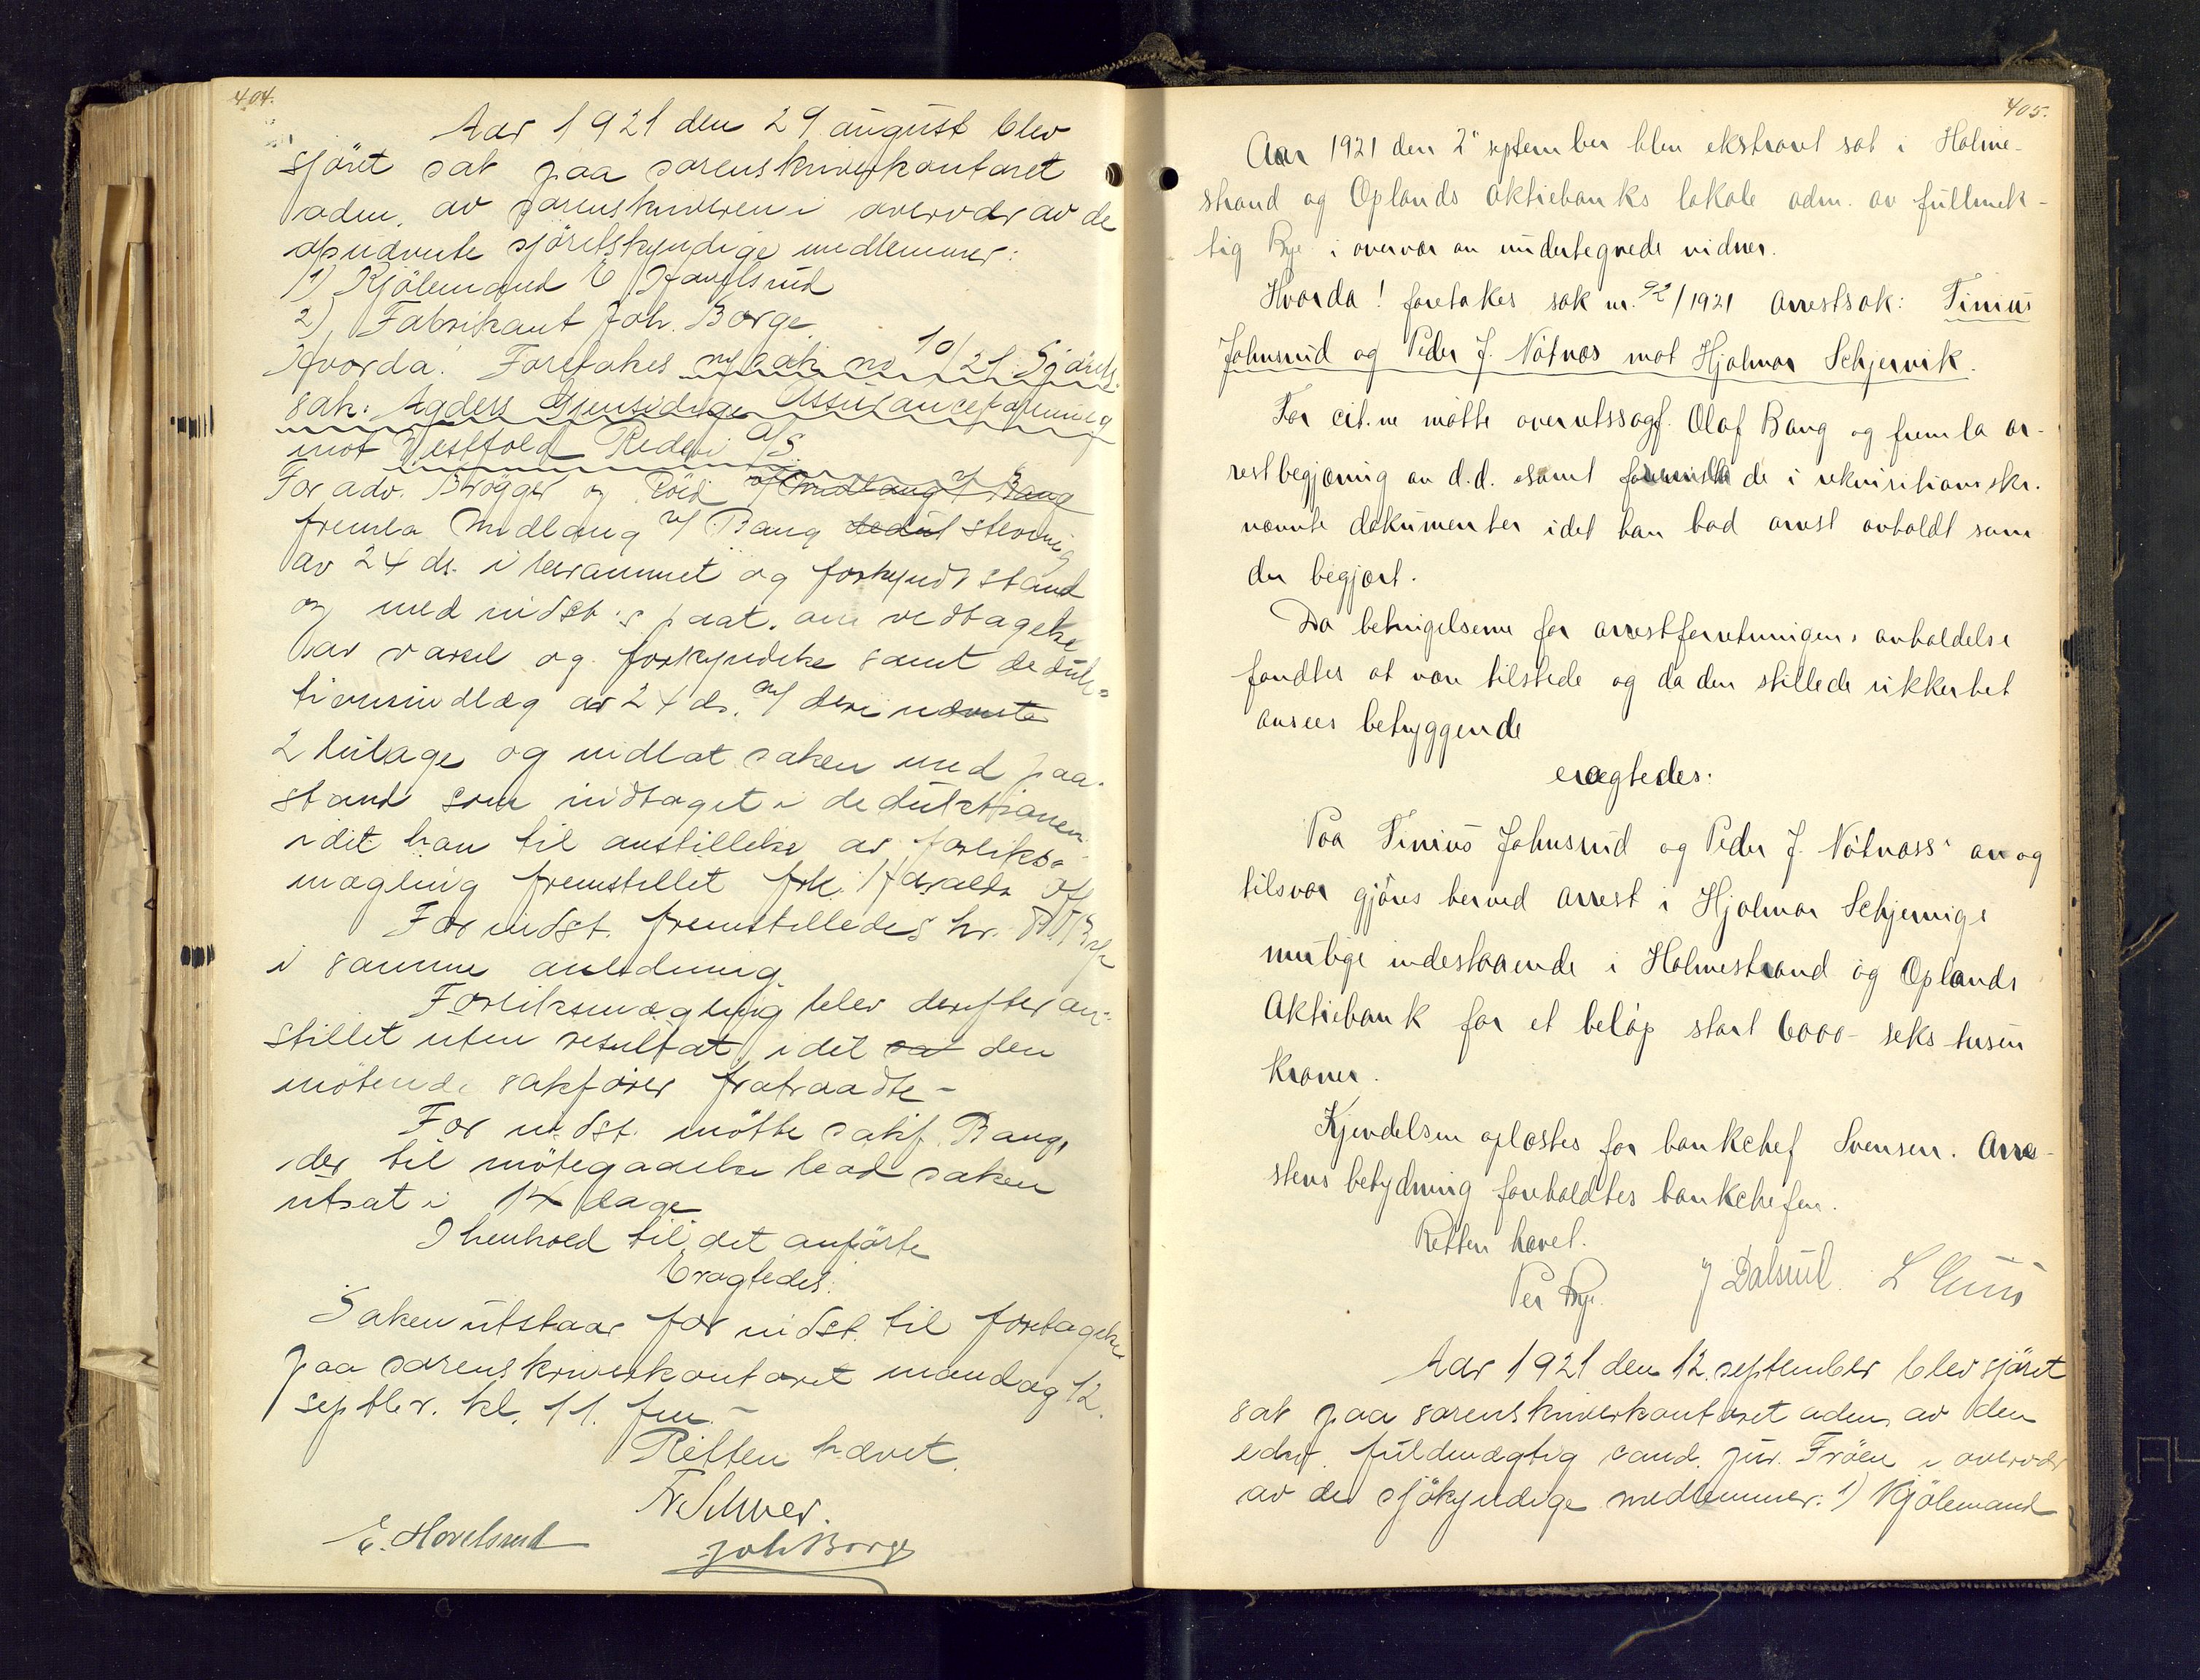 404.
Aar 1921 den 29 august blev
sjöret sat paa sorenskriverkontoret
adm. av sorenskriveren i overvær av de
opnævnte sjöretskyndige medlemmer:
1) Kjölemand E Havelsrud
2) Fabrikant Joh. Borge
Hvorda! Foretakes ny sak no 10/21: Sjörets
sak: Agders Gjensidige Assuranceforening
mot Vestfold Rederi A/S.
For adv. Brögger og Röed v/ Bang
fremla indlæg v/ Bang stevning
av 24 ds. i berammet og forkyndt stand
og med indst.s paat. om vedtagelse
av varsel og forkyndelse samt deduk-
tionsindlæg av 24 ds. m/ deri nævnte
2 bilage og indlot saken med paa-
stand som indtaget i deduktionen
idet han til anstillelse av forliks-
mægling fremstillet frk.
For indst. fremstilledes hr.
i samme anledning
Forliksmægling blev derefter an-
stillet uten resultat, idet den
mötende sakförer fratraadte -
For indst. mötte sakf. Bang,
der til mötegaaelse bad saken
utsat i 14 dage
I henhold til det anförte
Eragtedes:
Saken utstaar for indst. til foretagelse
paa sorenskriverkontoret mandag 12.
septbr. kl. 11. fm. -
Retten hævet.
E. Hovelsrud Joh Borge
405.
Aar 1921 den 2' september blev ekstraret sat i Holme-
strand og Oplands aktiebanks lokale adm. av fullmek-
tig Rye i overvær av undertegnede vidner.
Hvorda! foretakes sak nr. 92/1921 Arrestsak: Tinius
Johnsrud og Peder J. Nötnæs mot Hjalmar Schjervik.
For cit.ne mötte overretssagf. Olaf Bang og fremla ar-
restbegjæring av d.d. samt de i rekvisitionsskr.
nævnte dokumenter idet han bad arrest avholdt som
der begjært.
Da betingelserne for arrestforretningens avholdelse
fandtes at være tilstede og da den stillede sikkerhet
ansees betryggende
eragtedes:
Paa Tinius Johnsrud og Peder J. Nötnæss' an og
tilsvar gjöres herved arrest i Hjalmar Schjervigs
mulige indestaaende i Holmestrand og Oplands
Aktiebank for et belöp stort 6000 - seks tusen
kroner.
Kjendelsen oplæstes for bankchef Svensen. Arre-
stens betydning foreholdtes bankchefen.
Retten hævet.
Per Rye. J Dalsrud.
Aar 1921 den 12. september blev sjöret
sat paa sorenskriverkontoret adm. av den
edsv. fuldmægtig cand. jur. Fröen i overvær
av de sjökyndige medlemmer: 1) Kjölemand